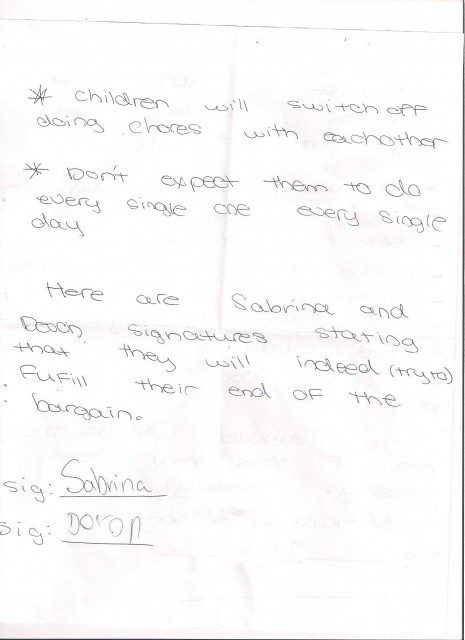 * children will switch off
doing chores with eachother
* Don't expect them to do
every single one every single
day
Here are Sabrina and
Doron signatures stating
that they will indeed (try to)
Fufill their end of the
bargain.
sig: Sabrina
sig: Doron